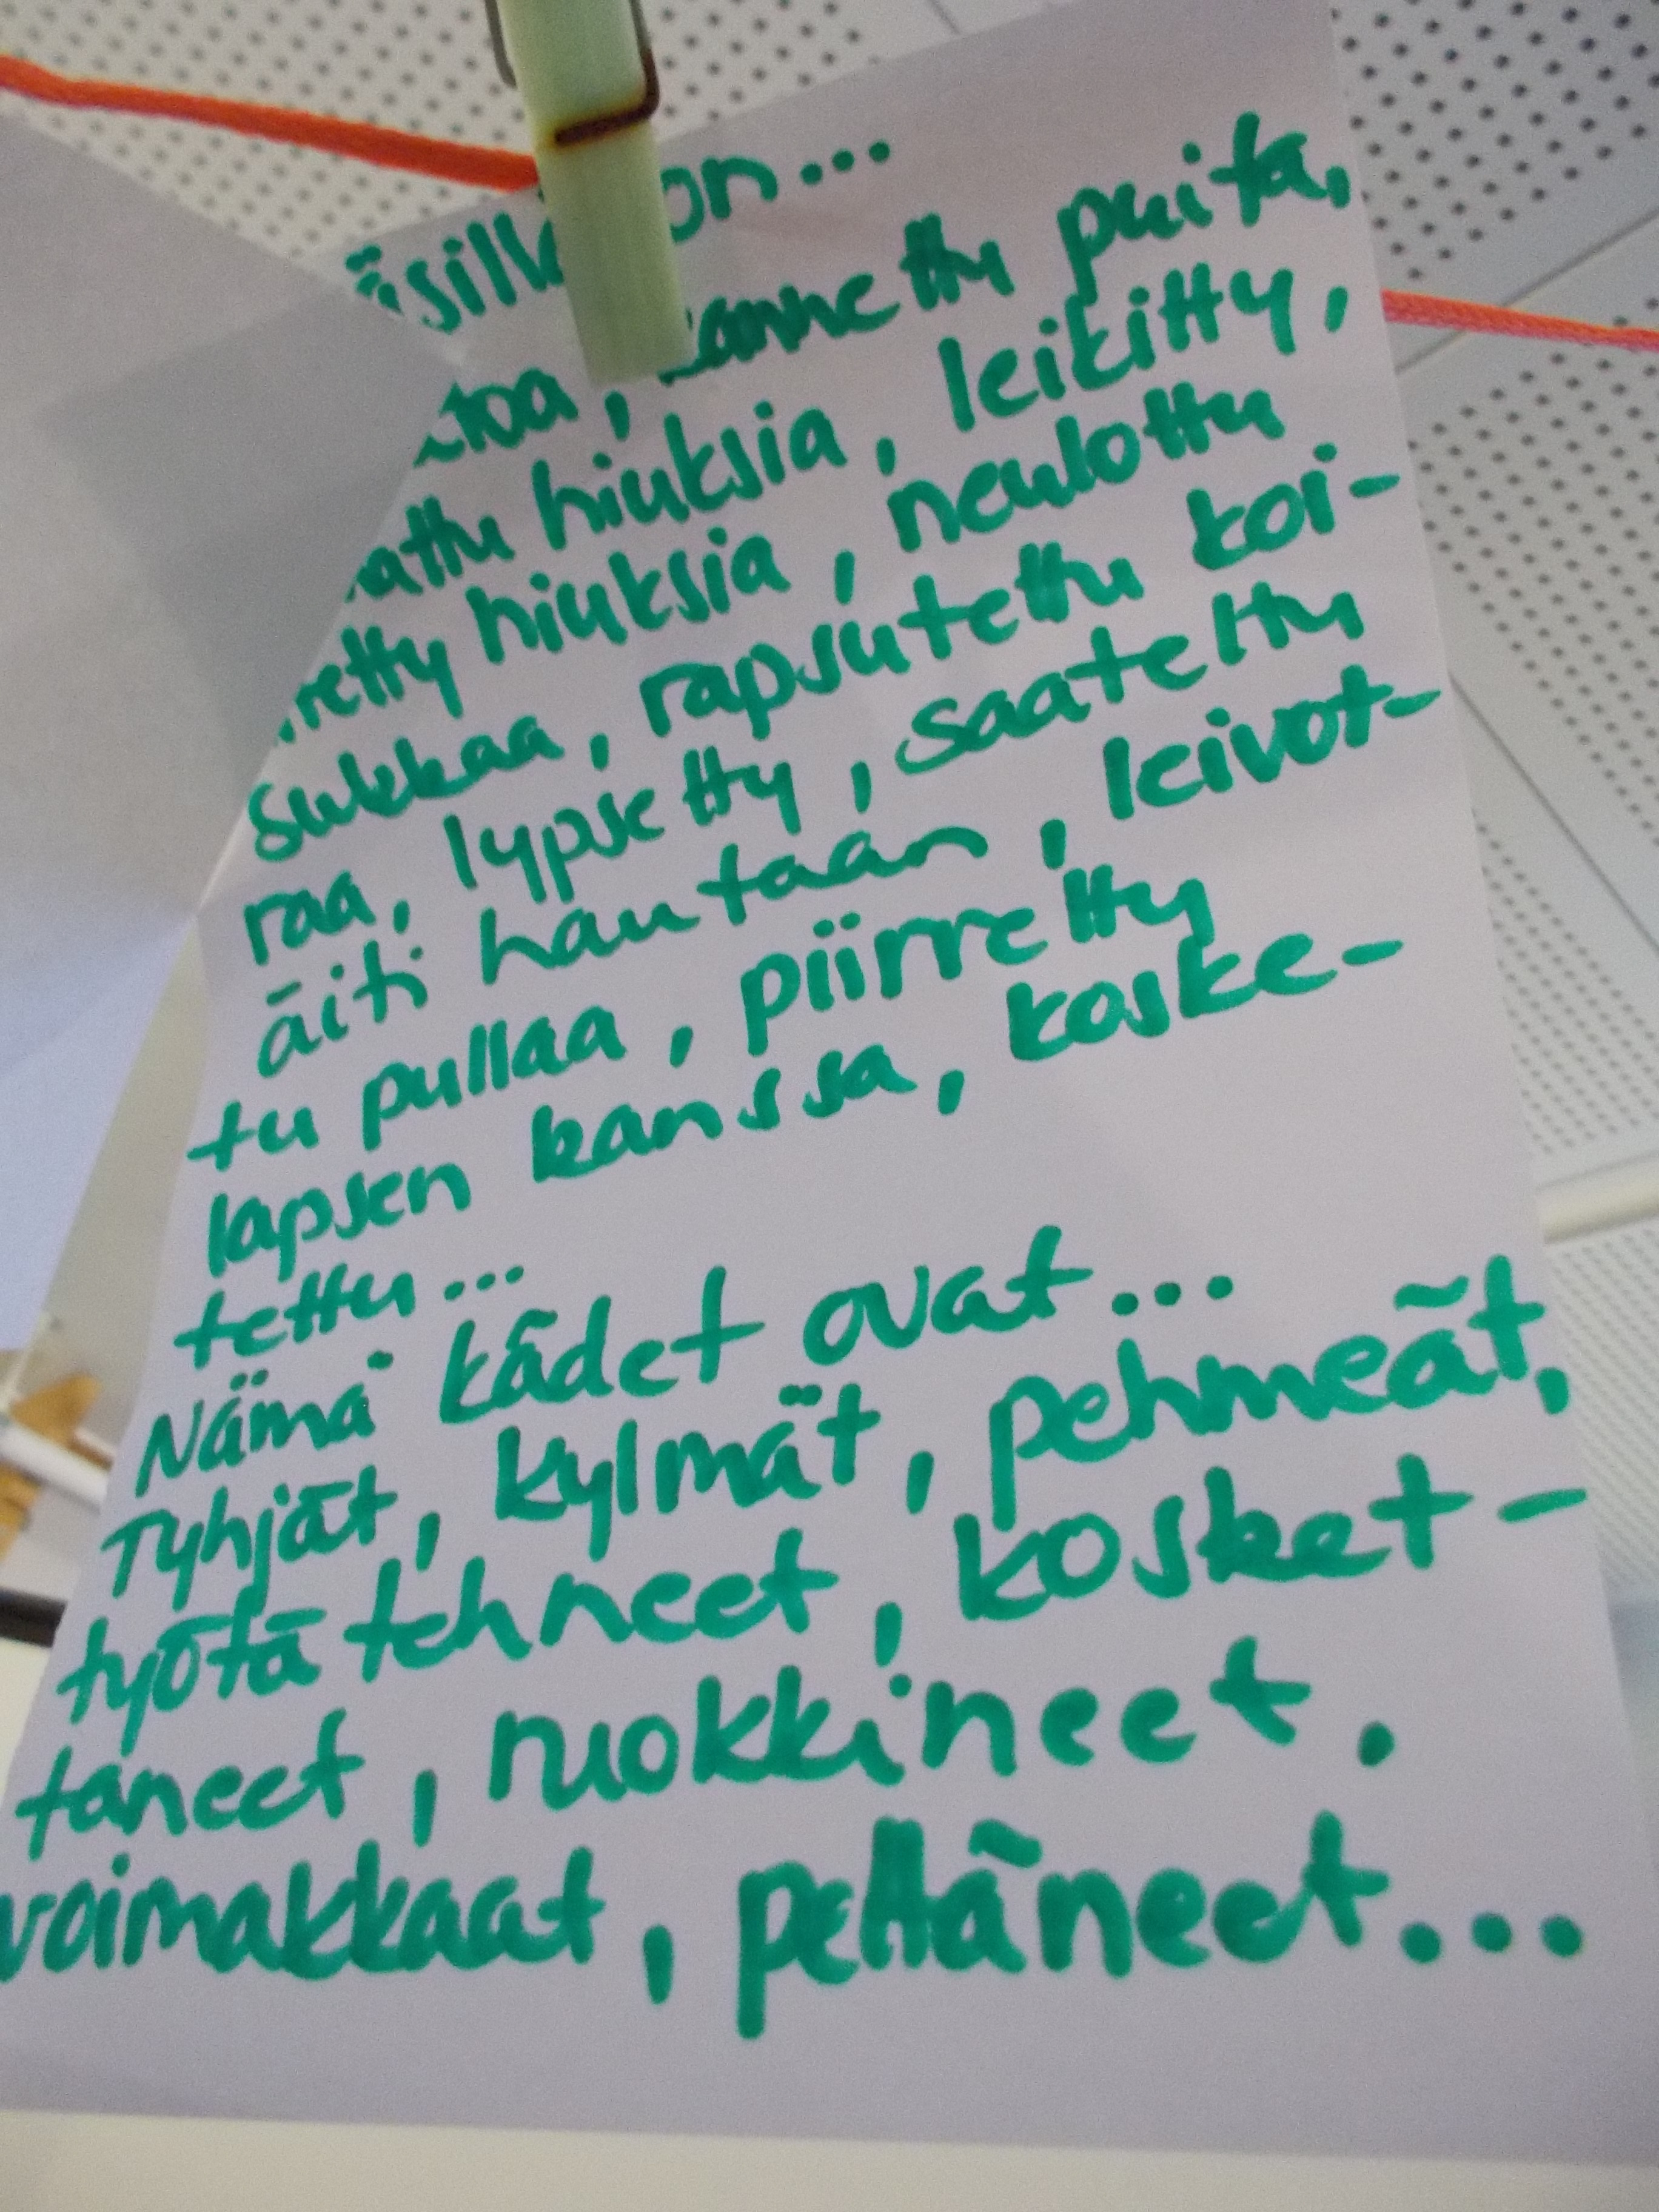 on...
kannettu puita,
hiuksia, leikitty,
hiuksia, neulottu
sukkaa, rapsutettu koi-
raa, lypsetty, saatettu
äiti hautaan, leivot-
tu pullaa, piirretty
lapsen kanssa, koske-
tettu...
Nämä kädet ovat...
Tyhjät, kylmät, pehmeät,
työtä tehneet, kosket-
taneet, ruokkineet.
voimakkaat, pettäneet...